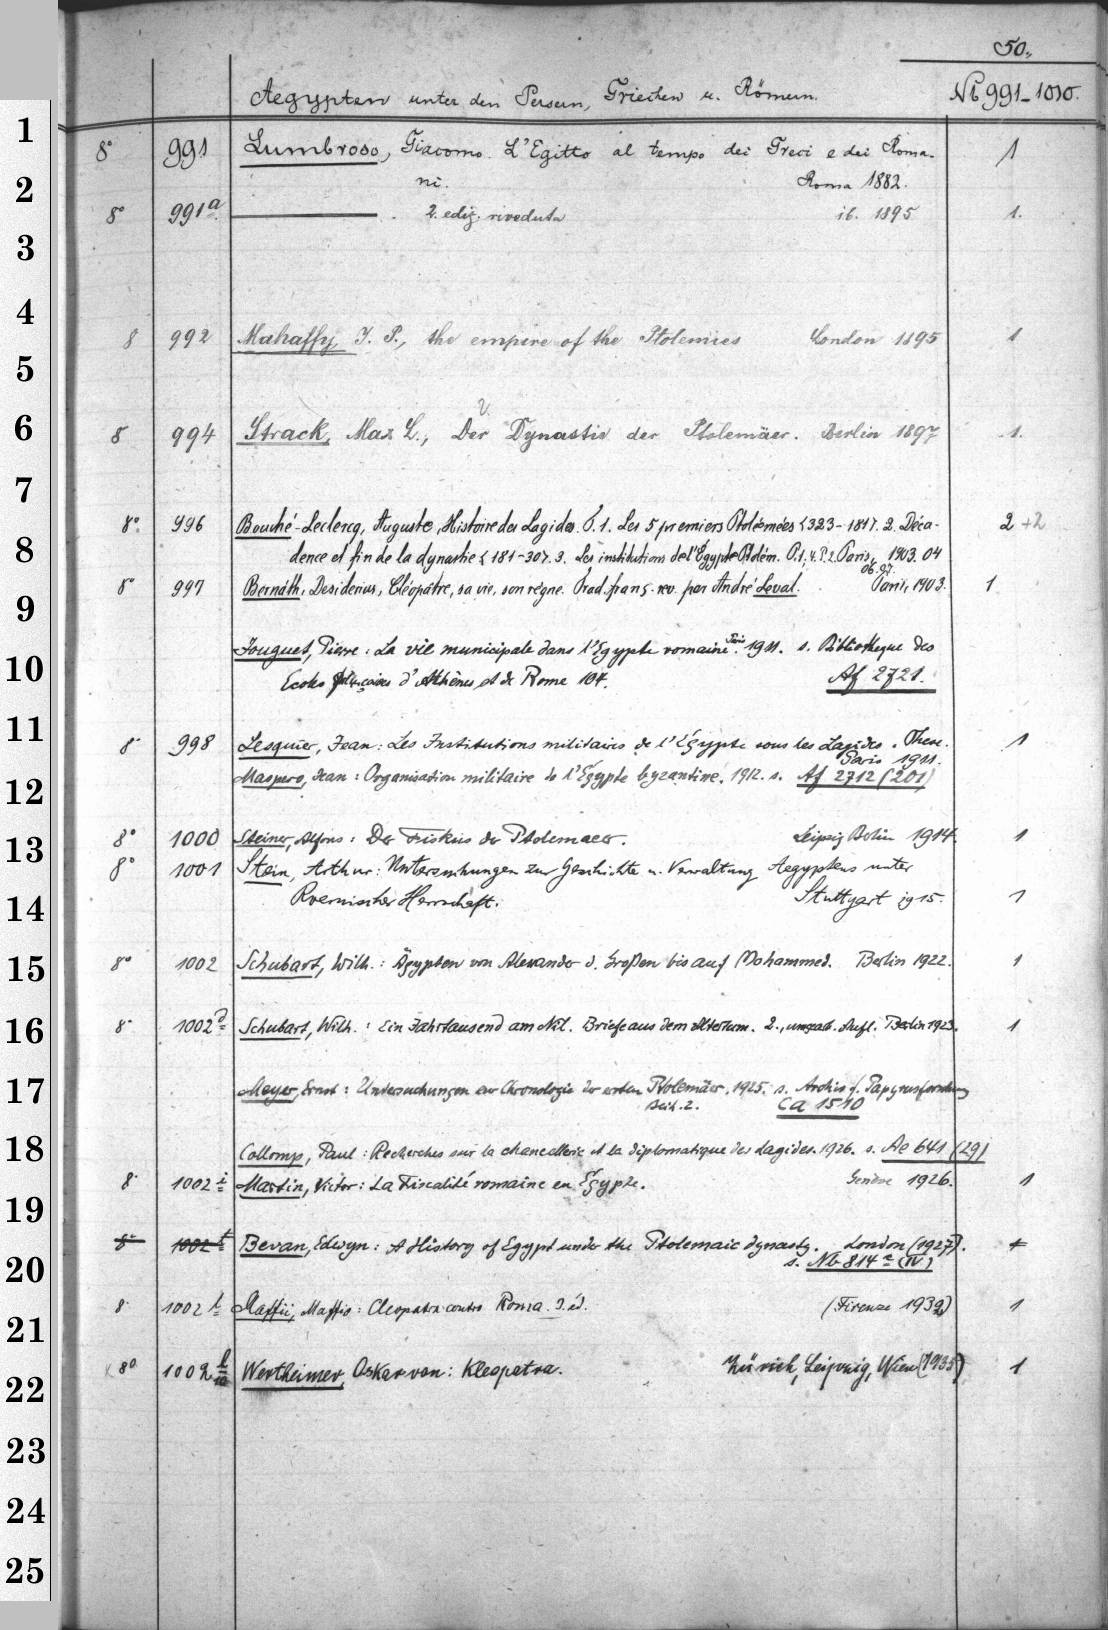 50.
Aegypten unter den Persern, Griechen u. Römern. Nb 991-1010.
1
8° 991 Lumbroso, Giacomo. L'Egitto al tempo dei Greci e dei Roma- 1
2
ni. Roma 1882.
8° 991a. ——— . 2. ediz. riveduta ib. 1895 1.
3
4
8 992 Mahaffy, J. P., the empire of the Ptolemies London 1895 1
5
6
8 994 Strack, Max L., Der Dynastie der Ptolemäer. Berlin 1897 1.
7
8° 996 Bouché-Leclercq, Auguste, Histoire des Lagides. T. 1. Les 5 premiers Ptolémées <323-181>. 2. Déca- 2 +2
8
dence et fin de la dynastie <181-30>. 3. Les institutions de l'Égypte Ptolém. P. 1, 4. P. 2 Paris, 1903. 04
06. 07.
8° 997 Bernáth, Desiderius, Cléopâtre, sa vie, son règne. Trad. franç. rev. par André Leval. Paris, 1903. 1
9
Jouguet, Pierre: La vie municipale dans l'Egypte romaine. Paris 1911. s. Bibliotheque des
10
Ecoles françaises d'Athènes et de Rome 104. Af 2721.
11
8° 998 Lesquier, Jean: Les Institutions militaires de l'Égypte sous les Lagides. These. 1
Paris 1911.
Maspero, Jean: Organisation militaire de l'Égypte byzantine. 1912. s. Af 2712 (201)
12
8° 1000 Steiner, Alfons: Der Fiskus der Ptolemaeer. Leipzig Berlin 1914. 1
13
8° 1001 Stein, Arthur: Untersuchungen zur Geschichte u. Verwaltung Aegyptens unter
Roemischer Herrschaft. Stuttgart 1915. 1
14
8° 1002 Schubart, Wilh.: Ägypten von Alexander d. Großen bis auf Mohammed. Berlin 1922. 1
15
8° 1002 d Schubart, Wilh.: Ein Jahrtausend am Nil. Briefe aus dem Altertum. 2., umgearb. Aufl. Berlin 1923. 1
16
17
Meyer, Ernst: Untersuchungen zur Chronologie der ersten Ptolemäer. 1925. s. Archiv f. Papyrusforschung
Beih. 2. Ca 1510
18
Collomp, Paul: Recherches sur la chancellerie et la diplomatique des Lagides. 1926. s. Ae 641 (29)
8° 1002 i Martin, Victor: La Fiscalité romaine en Égypte. Genève 1926. 1
19
8° 1002 Bevan, Edwyn: A History of Egypt under the Ptolemaic dynasty. London (1927). 1
20
s. Nb 814 a (IV)
8° 1002 Maffii, Maffio: Cleopatra contro Roma. (Firenze 1939) 1
21
8° 1002 Wertheimer, Oskar von: Kleopatra. Zürich, Leipzig, Wien (1935) 1
22
23
24
25